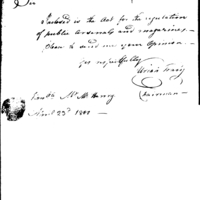 Sir
Inclosed is the Act for the regulation
of public Arsenals and magazines,
Please to send me your Opinion
yrs respectfully
Uriah Tracy
Chairman
Honble Mr McHenry
April 23d 1800